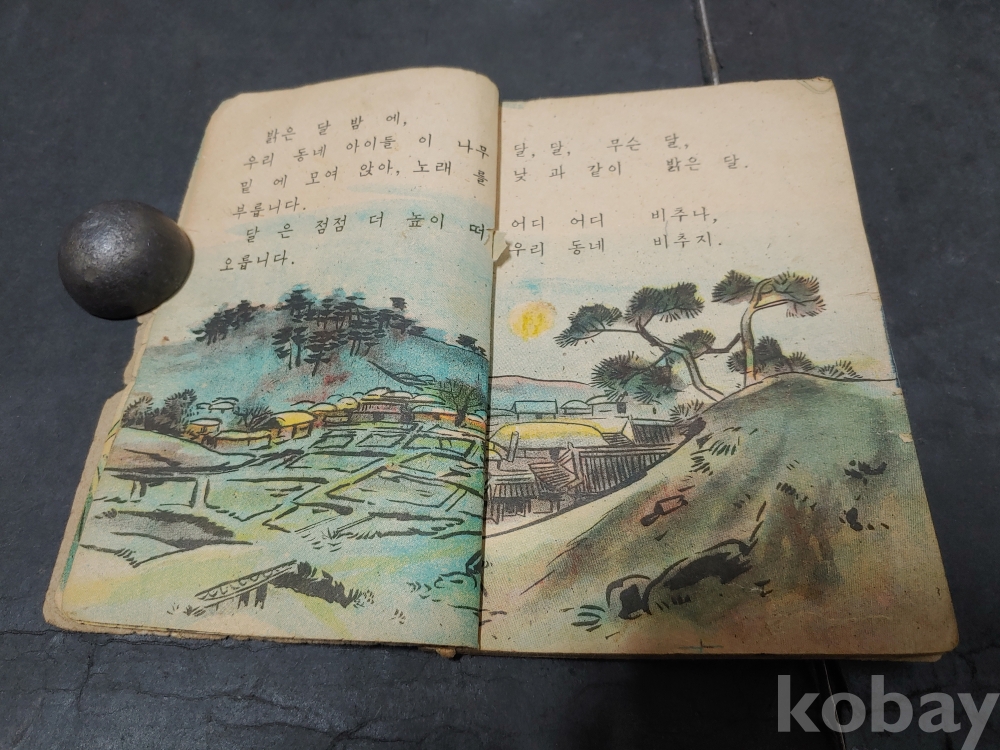 밝은 달 밤 에,
우리 동네 아이들 이 나무
밑 에 모여 앉아, 노래 를
부릅니다.
달 은 점점 더 높이 떠
오릅니다.
달, 달, 무슨 달,
낮 과 같이 밝은 달.
어디 어디 비추나,
우리 동네 비추지.
kobay